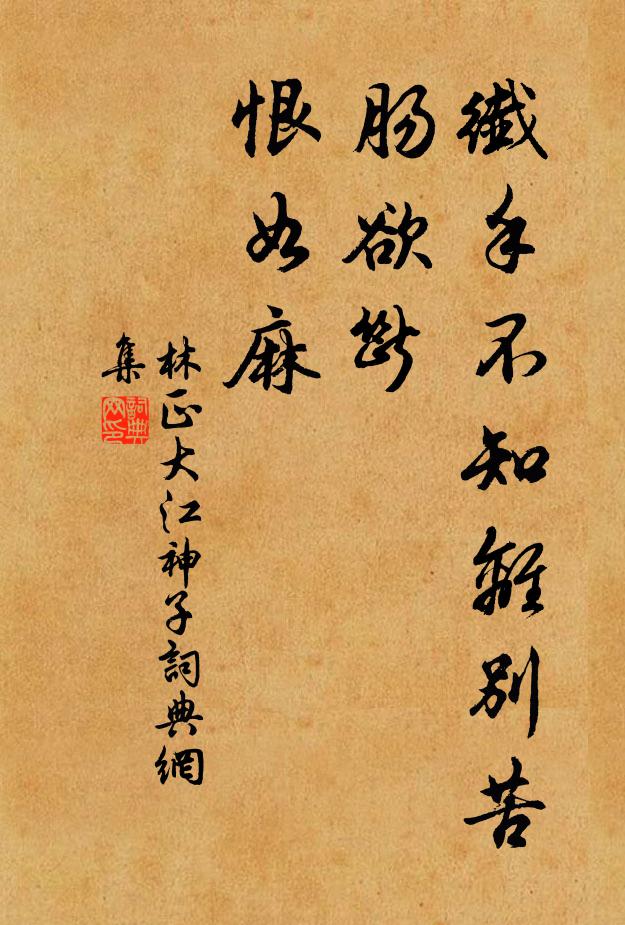 纖手不知離別苦
腸欲斷
恨如麻
林正大江神子詞典網
集
詞典網印